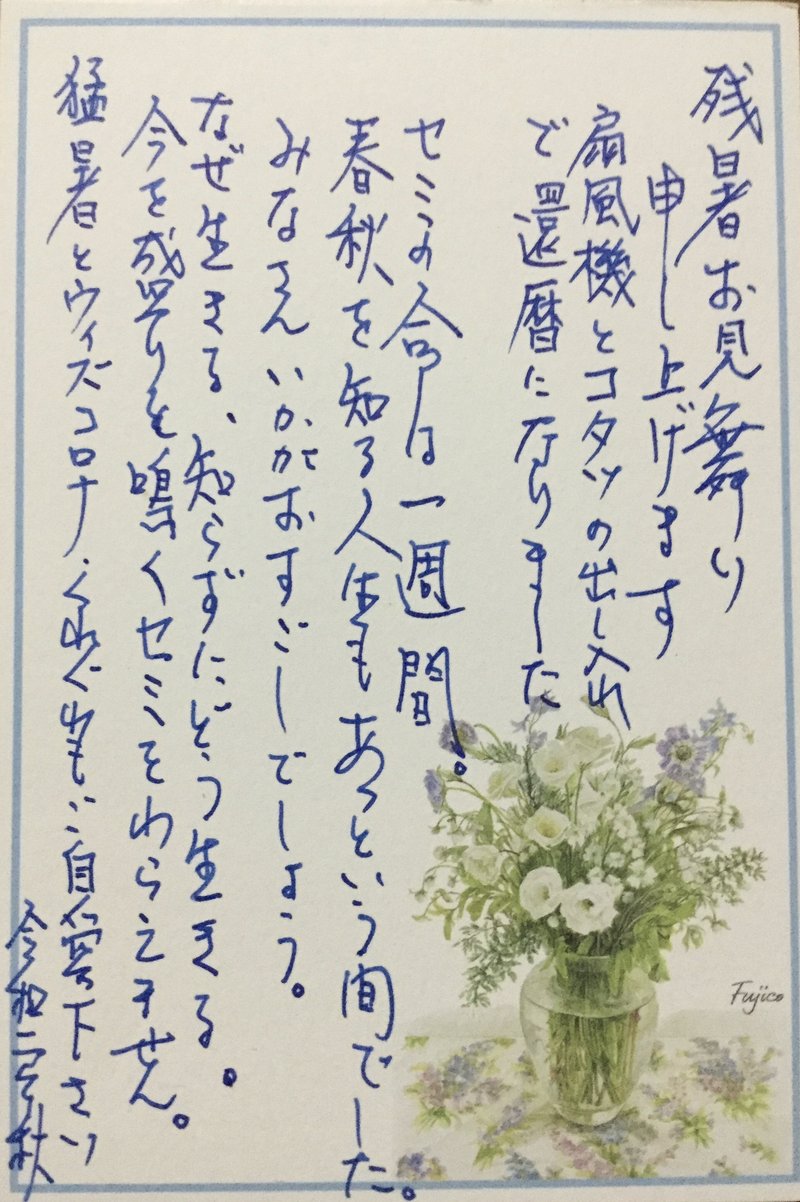 残暑お見舞い
申し上げます
扇風機とコタツの出し入れ
で還暦になりました
セミの命は一週間。
春秋を知る人生もあっという間でした。
みなさんいかがおすごしでしょう。
なぜ生きる、知らずにどう生きる。
今を成 りと鳴くセミをわらえません。
猛暑とウィズコロナ、くれぐれもご自愛下さい
令和二年秋
Fujico